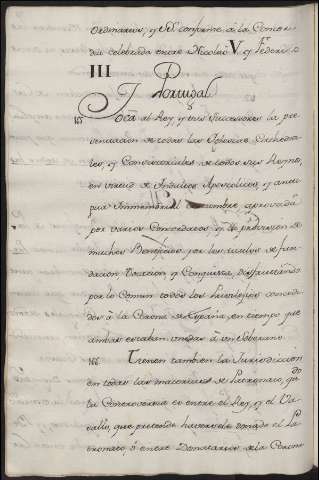 ordinarios, y se conforme à la Concor-
dia celebrada entre Nicolao V y Federico
III
Portugal
165 Toca al Rey, y sus Successores la pre-
sentacion de todas las Iglesias Cathedra-
les, y Consistoriales de todos sus Reynos,
en virtud de Indultos Apostolicos, y anti-
gua immemorial costumbre, aprovada
por varios Concordatos y la provision de
muchos Beneficios por los titulos de fun-
dacion, Dotacion, y Conquista, disfrutando
por lo Comun todos los Privilegios concedi-
dos à la Corona de España, en tiempo que
ambas estaban unidas à un Soberano.
166 Tienen tambien la Jurisdiccion
en todas las materias de Patronato, qdo
la Controversia es entre el Rey, y el Va-
sallo, que pretende haversele donado el Pa-
tronato, ò entre Donatarios de la Corona